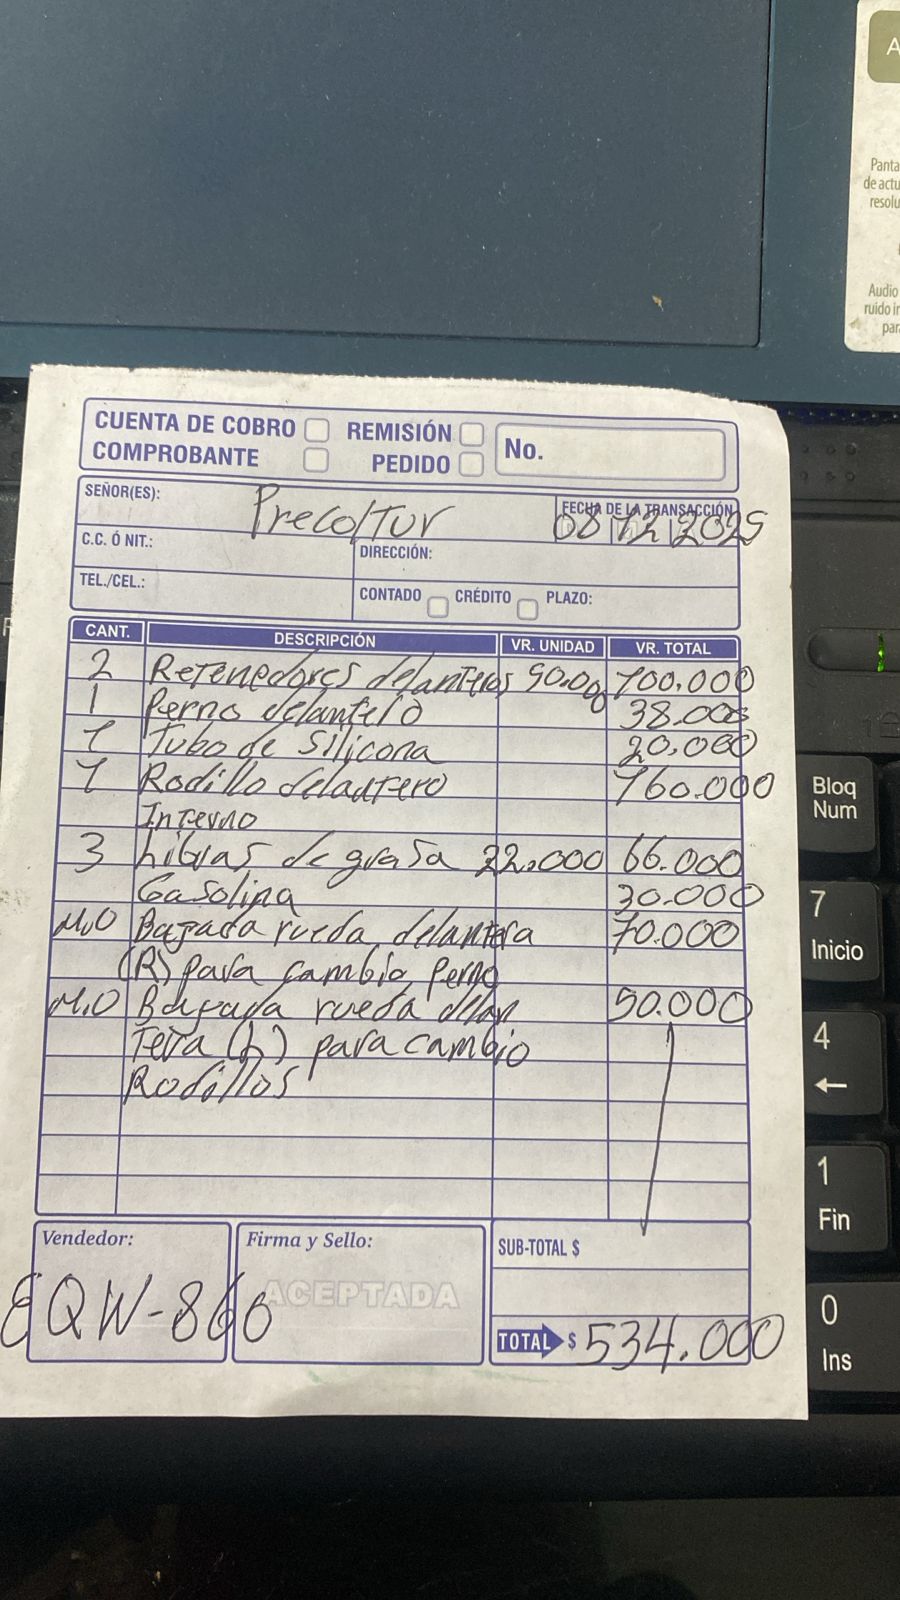 A
Panta
de actu
resolu
Audio
ruido in
par
CUENTA DE COBRO REMISIÓN No.
COMPROBANTE PEDIDO
SEÑOR(ES): Precoltur FECHA DE LA TRANSACCIÓN 08 12 2025
C.C. Ó NIT.: DIRECCIÓN:
TEL./CEL.: CONTADO CRÉDITO PLAZO:
CANT. DESCRIPCIÓN VR. UNIDAD VR. TOTAL
2 Retenedores delanteros 50.00 100.000
1 Perno delantero 38.000
1 Tubo de Silicona 20.000
1 Rodillo delantero 160.000
Interno
3 Libras de grasa 22.000 66.000
Gasolina 30.000
M.O Bajada rueda delantera 70.000
(R) para cambio perno
M.O Bajada rueda delan 50.000
tera (L) para cambio
Rodillos
Vendedor: Firma y Sello: SUB-TOTAL $
EQW-860 ACEPTADA
TOTAL $ 534.000
Bloq
Num
7
Inicio
4
←
1
Fin
0
Ins